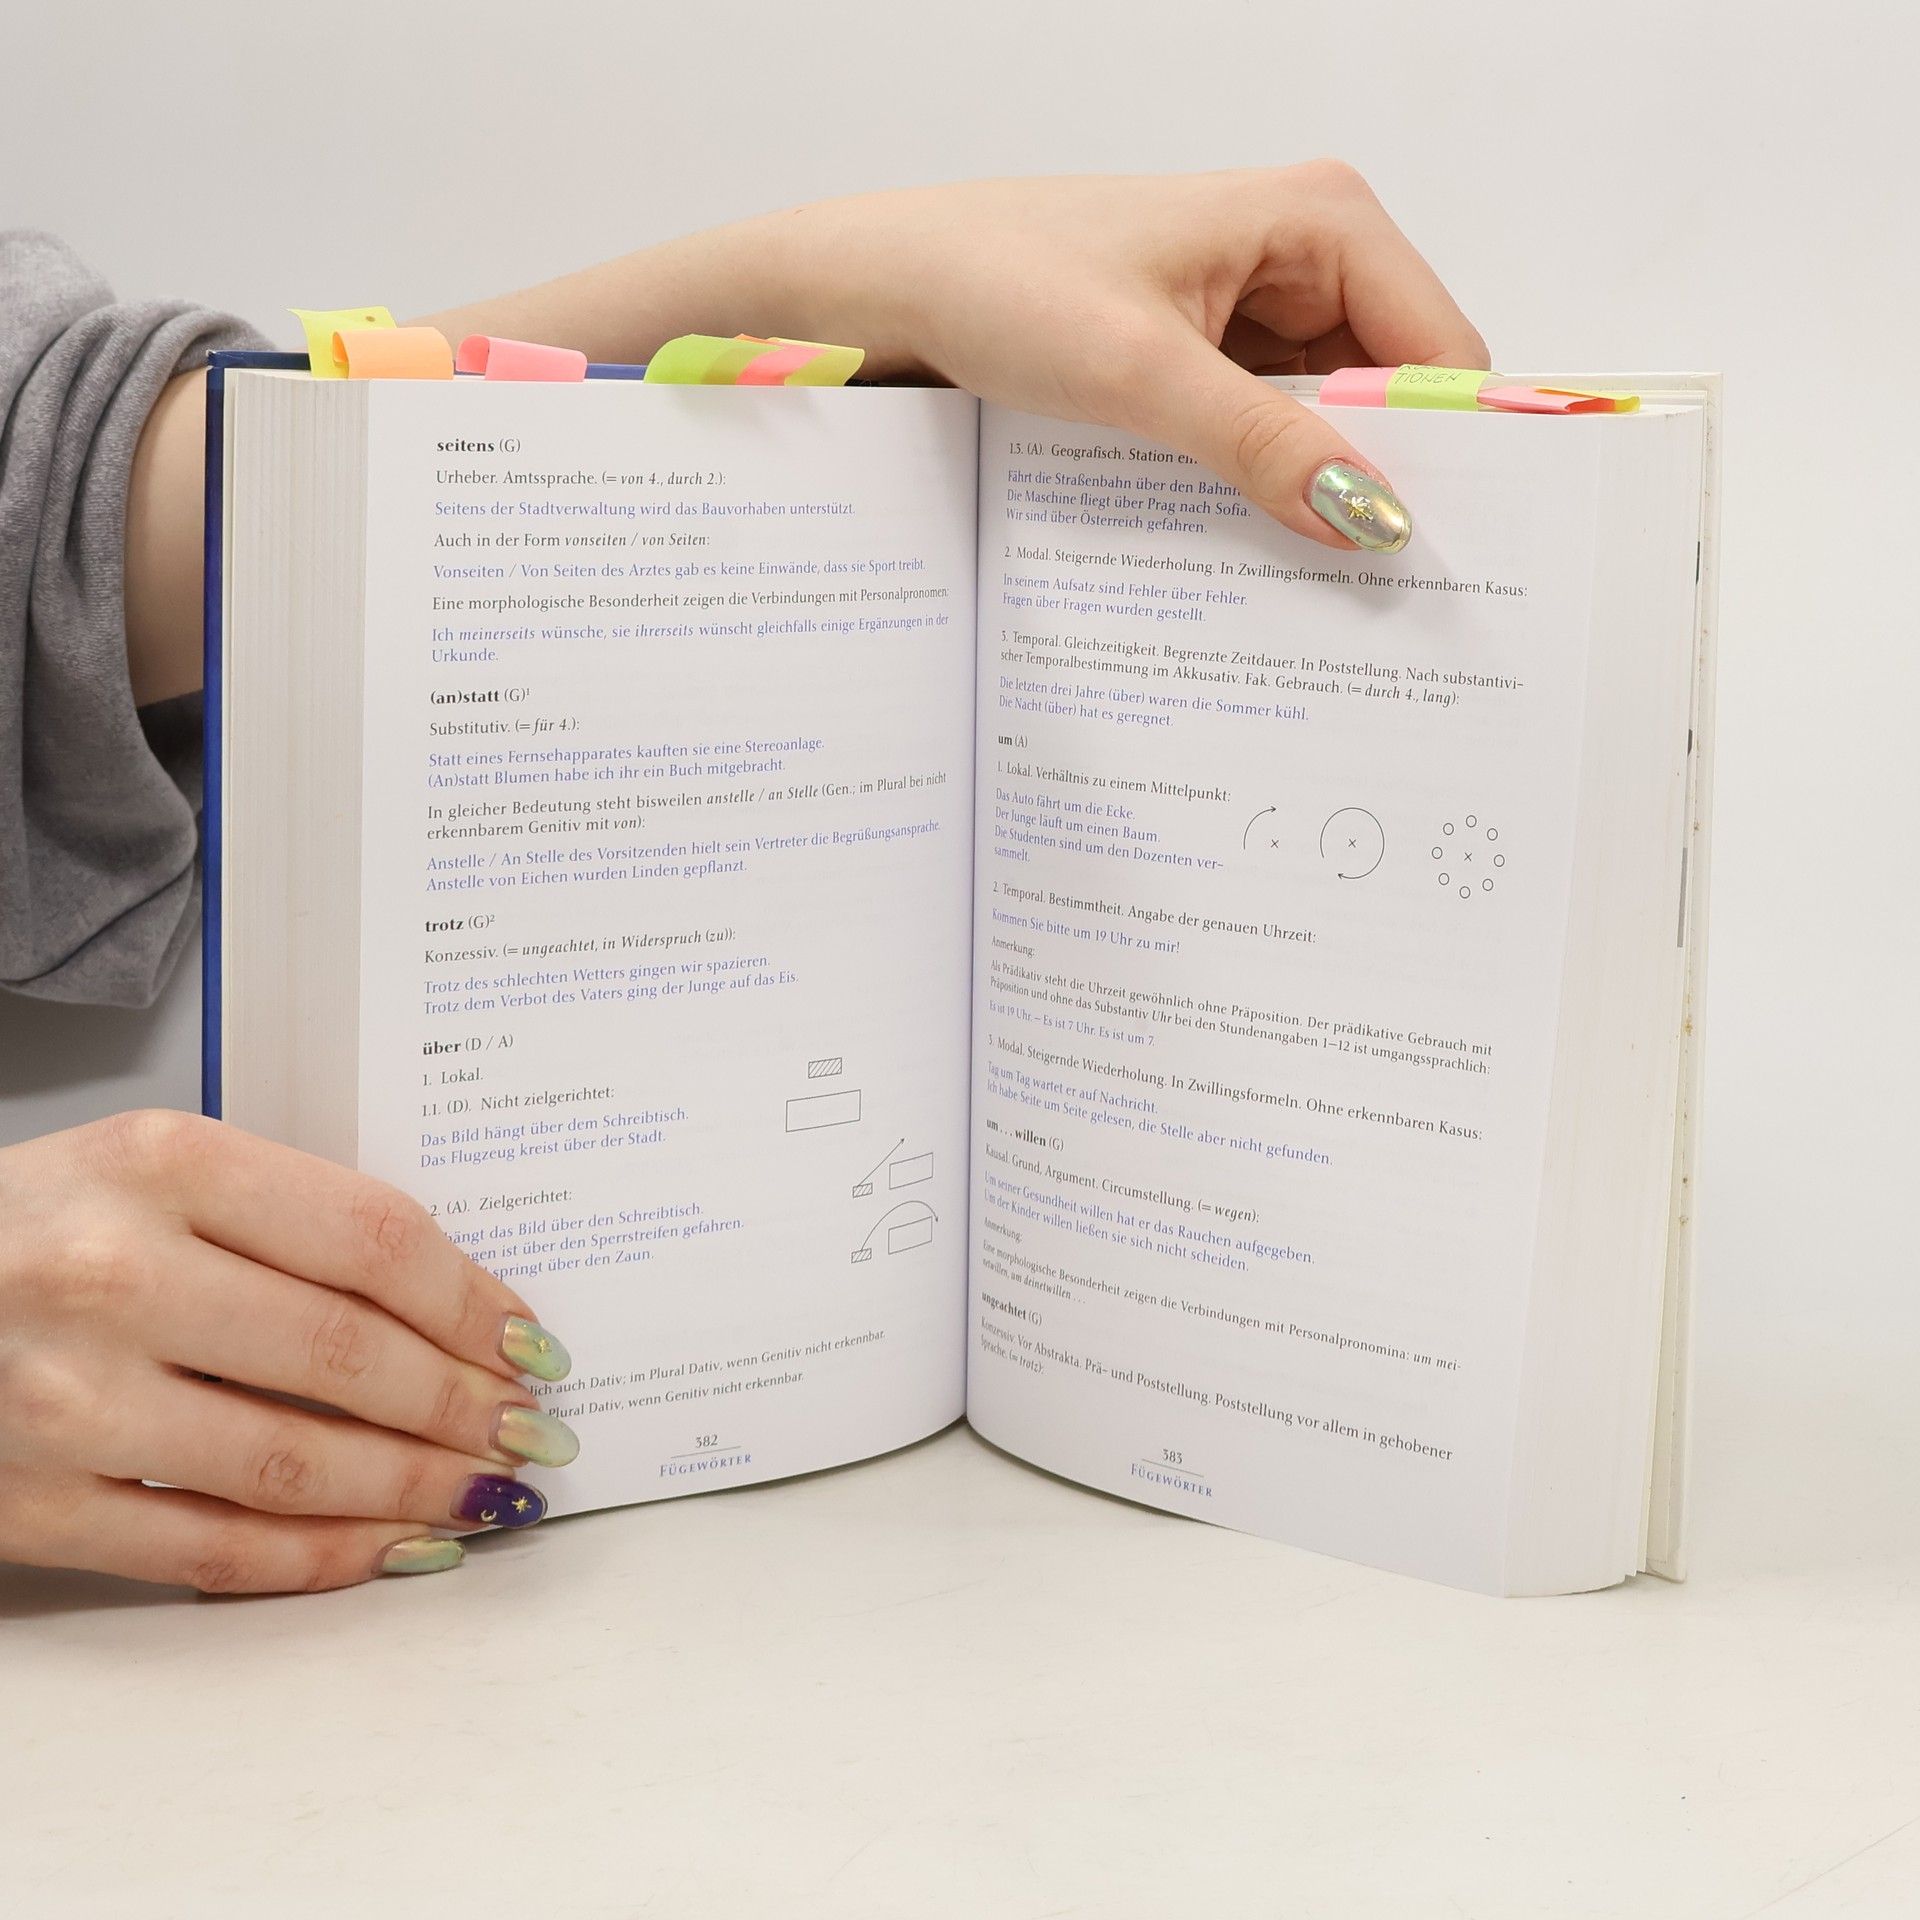 TIONEN
seitens (G)
Urheber. Amtssprache. (= von 4., durch 2.):
Seitens der Stadtverwaltung wird das Bauvorhaben unterstützt.
Auch in der Form vonseiten / von Seiten:
Vonseiten / Von Seiten des Arztes gab es keine Einwände, dass sie Sport treibt.
Eine morphologische Besonderheit zeigen die Verbindungen mit Personalpronomen:
Ich meinerseits wünsche, sie ihrerseits wünscht gleichfalls einige Ergänzungen in der
Urkunde.
(an)statt (G)¹
Substitutiv. (= für 4.):
Statt eines Fernsehapparates kauften sie eine Stereoanlage.
(An)statt Blumen habe ich ihr ein Buch mitgebracht.
In gleicher Bedeutung steht bisweilen anstelle / an Stelle (Gen.; im Plural bei nicht
erkennbarem Genitiv mit von):
Anstelle / An Stelle des Vorsitzenden hielt sein Vertreter die Begrüßungsansprache.
Anstelle von Eichen wurden Linden gepflanzt.
trotz (G)²
Konzessiv. (= ungeachtet, in Widerspruch (zu)):
Trotz des schlechten Wetters gingen wir spazieren.
Trotz dem Verbot des Vaters ging der Junge auf das Eis.
über (D / A)
1. Lokal.
1.1. (D). Nicht zielgerichtet:
Das Bild hängt über dem Schreibtisch.
Das Flugzeug kreist über der Stadt.
2. (A). Zielgerichtet:
hängt das Bild über den Schreibtisch.
ist über den Sperrstreifen gefahren.
springt über den Zaun.
auch Dativ; im Plural Dativ, wenn Genitiv nicht erkennbar.
Plural Dativ, wenn Genitiv nicht erkennbar.
382
FÜGEWÖRTER
1.3. (A). Geografisch. Station
Fährt die Straßenbahn über den
Die Maschine fliegt über Prag nach Sofia.
Wir sind über Österreich gefahren.
2. Modal. Steigernde Wiederholung. In Zwillingsformeln. Ohne erkennbaren Kasus:
In seinem Aufsatz sind Fehler über Fehler.
Fragen über Fragen wurden gestellt.
3. Temporal. Gleichzeitigkeit. Begrenzte Zeitdauer. In Poststellung. Nach substantivi-
scher Temporalbestimmung im Akkusativ. Fak. Gebrauch. (= durch 4., lang):
Die letzten drei Jahre (über) waren die Sommer kühl.
Die Nacht (über) hat es geregnet.
um (A)
1. Lokal. Verhältnis zu einem Mittelpunkt:
Das Auto fährt um die Ecke.
Der Junge läuft um einen Baum.
Die Studenten sind um den Dozenten ver-
sammelt.
2. Temporal. Bestimmtheit. Angabe der genauen Uhrzeit:
Kommen Sie bitte um 19 Uhr zu mir!
Anmerkung:
Als Prädikativ steht die Uhrzeit gewöhnlich ohne Präposition. Der prädikative Gebrauch mit
Präposition und ohne das Substantiv Uhr bei den Stundenangaben 1–12 ist umgangssprachlich:
Es ist 19 Uhr. – Es ist 7 Uhr. Es ist um 7.
3. Modal. Steigernde Wiederholung. In Zwillingsformeln. Ohne erkennbaren Kasus:
Tag um Tag wartet er auf Nachricht.
Ich habe Seite um Seite gelesen, die Stelle aber nicht gefunden.
um . . . willen (G)
Kausal. Grund, Argument. Circumstellung. (= wegen):
Um seiner Gesundheit willen hat er das Rauchen aufgegeben.
Um der Kinder willen ließen sie sich nicht scheiden.
Anmerkung:
Eine morphologische Besonderheit zeigen die Verbindungen mit Personalpronomina: um mei-
netwillen, um deinetwillen . . .
ungeachtet (G)
Konzessiv. Vor Abstrakta. Prä- und Poststellung. Poststellung vor allem in gehobener
Sprache. (= trotz):
383
FÜGEWÖRTER